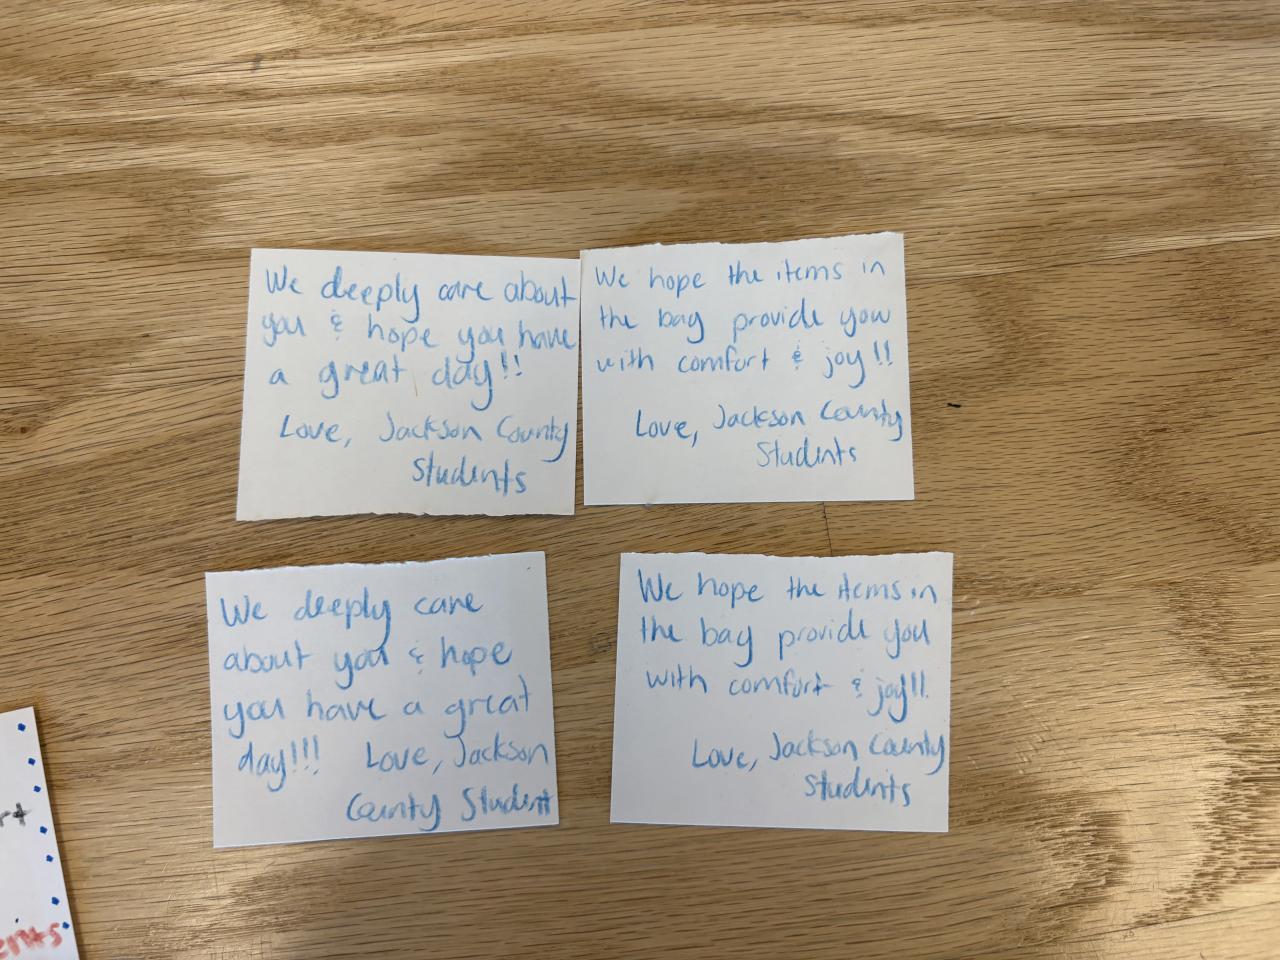 We deeply care about
you & hope you have
a great day!!
Love, Jackson County
Students
We hope the items in
the bag provide you
with comfort & joy!!
Love, Jackson County
Students
We deeply care
about you & hope
you have a great
day!!! Love, Jackson
County Student
We hope the items in
the bag provide you
with comfort & joy!!
Love, Jackson County
Students